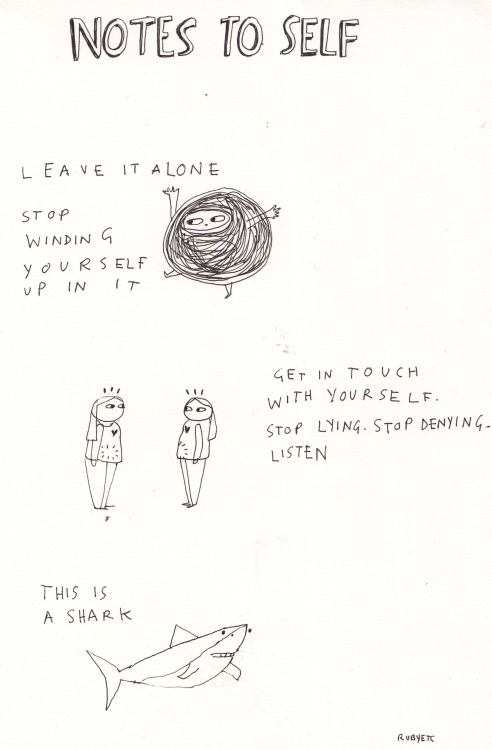 NOTES TO SELF
LEAVE IT ALONE
STOP
WINDING
YOURSELF
UP IN IT
GET IN TOUCH
WITH YOURSELF.
STOP LYING. STOP DENYING.
LISTEN
THIS IS
A SHARK
RUBYETC